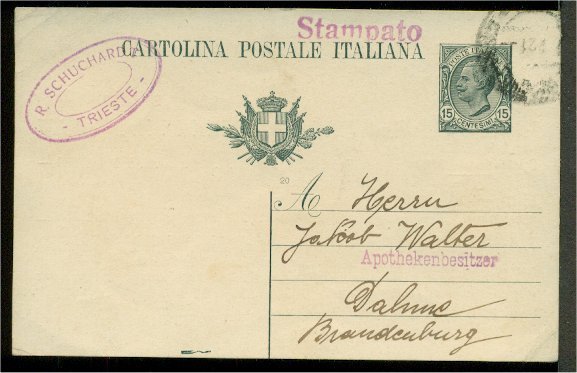 Stampato
CARTOLINA POSTALE ITALIANA
R. SCHUCHARDT
- TRIESTE -
15 CENTESIMI 15
20
A Herrn
Jakob Walter
Apothekenbesitzer
Dahme
Brandenburg